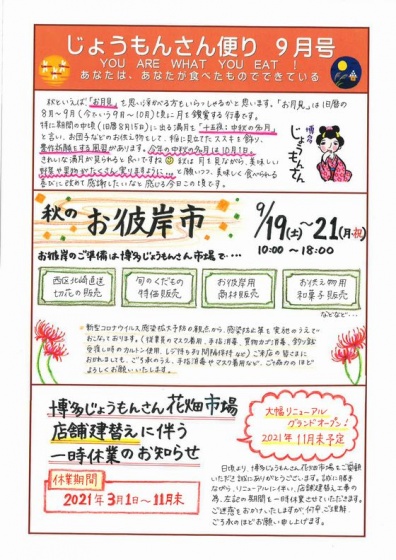 じょうもんさん便り 9月号
YOU ARE WHAT YOU EAT !
あなたは、あなたが食べたものでできている
秋といえば「お月見」を思い浮かべる方もいらっしゃるかと思います。「お月見」は旧暦の
8月〜9月(今でいう9月〜10月)頃に月を鑑賞する行事です。
特に期間の中頃(旧暦8月15日)に出る満月を「十五夜、中秋の名月」
と言い、お団子などのお供え物をして、稲に見立てたススキを飾り、
豊作祈願をする風習があります。今年の中秋の名月は10月1日。
きれいな満月が見られると良いですね 私は月を見ながら、美味しい
野菜や果物がたくさん実りますように…と願いつつ、美味しく食べられる
喜びに改めて感謝したいなと感じる今日この頃です。
博多
じょうもんさん
秋の お彼岸市 9/19(土)〜21(月・祝)
10:00〜18:00
お彼岸のご準備は博多じょうもんさん市場で・・・
西区北崎直送
切花の販売
旬のくだもの
特価販売
お彼岸用
商材販売
お供え物用
和菓子販売
などなど…
新型コロナウイルス感染拡大予防の観点から、感染防止策を実施のうえで
おこなっております。(従業員のマスク着用、手指消毒、買物カゴ消毒、釣り銭
受渡し時のカルトン使用、レジ待ち列間隔維持など)ご来店の皆さまに
おかれましても、ご来店のうえ、手指消毒やマスク着用など、ご協力のほど
よろしくお願いいたします。
博多じょうもんさん花畑市場
店舗建替えに伴う
一時休業のお知らせ
休業期間
2021年3月1日〜11月末
大幅リニューアル
グランドオープン!
2021年11月末予定
日頃より、博多じょうもんさん花畑市場をご愛顧
いただき誠にありがとうございます。誠に勝手
ながら、リニューアルに伴い、店舗建替え工事の
為、左記の期間を一時休業させていただきます。
ご迷惑をおかけいたしますが、何卒、ご理解、
ご了承のほどお願い申し上げます。